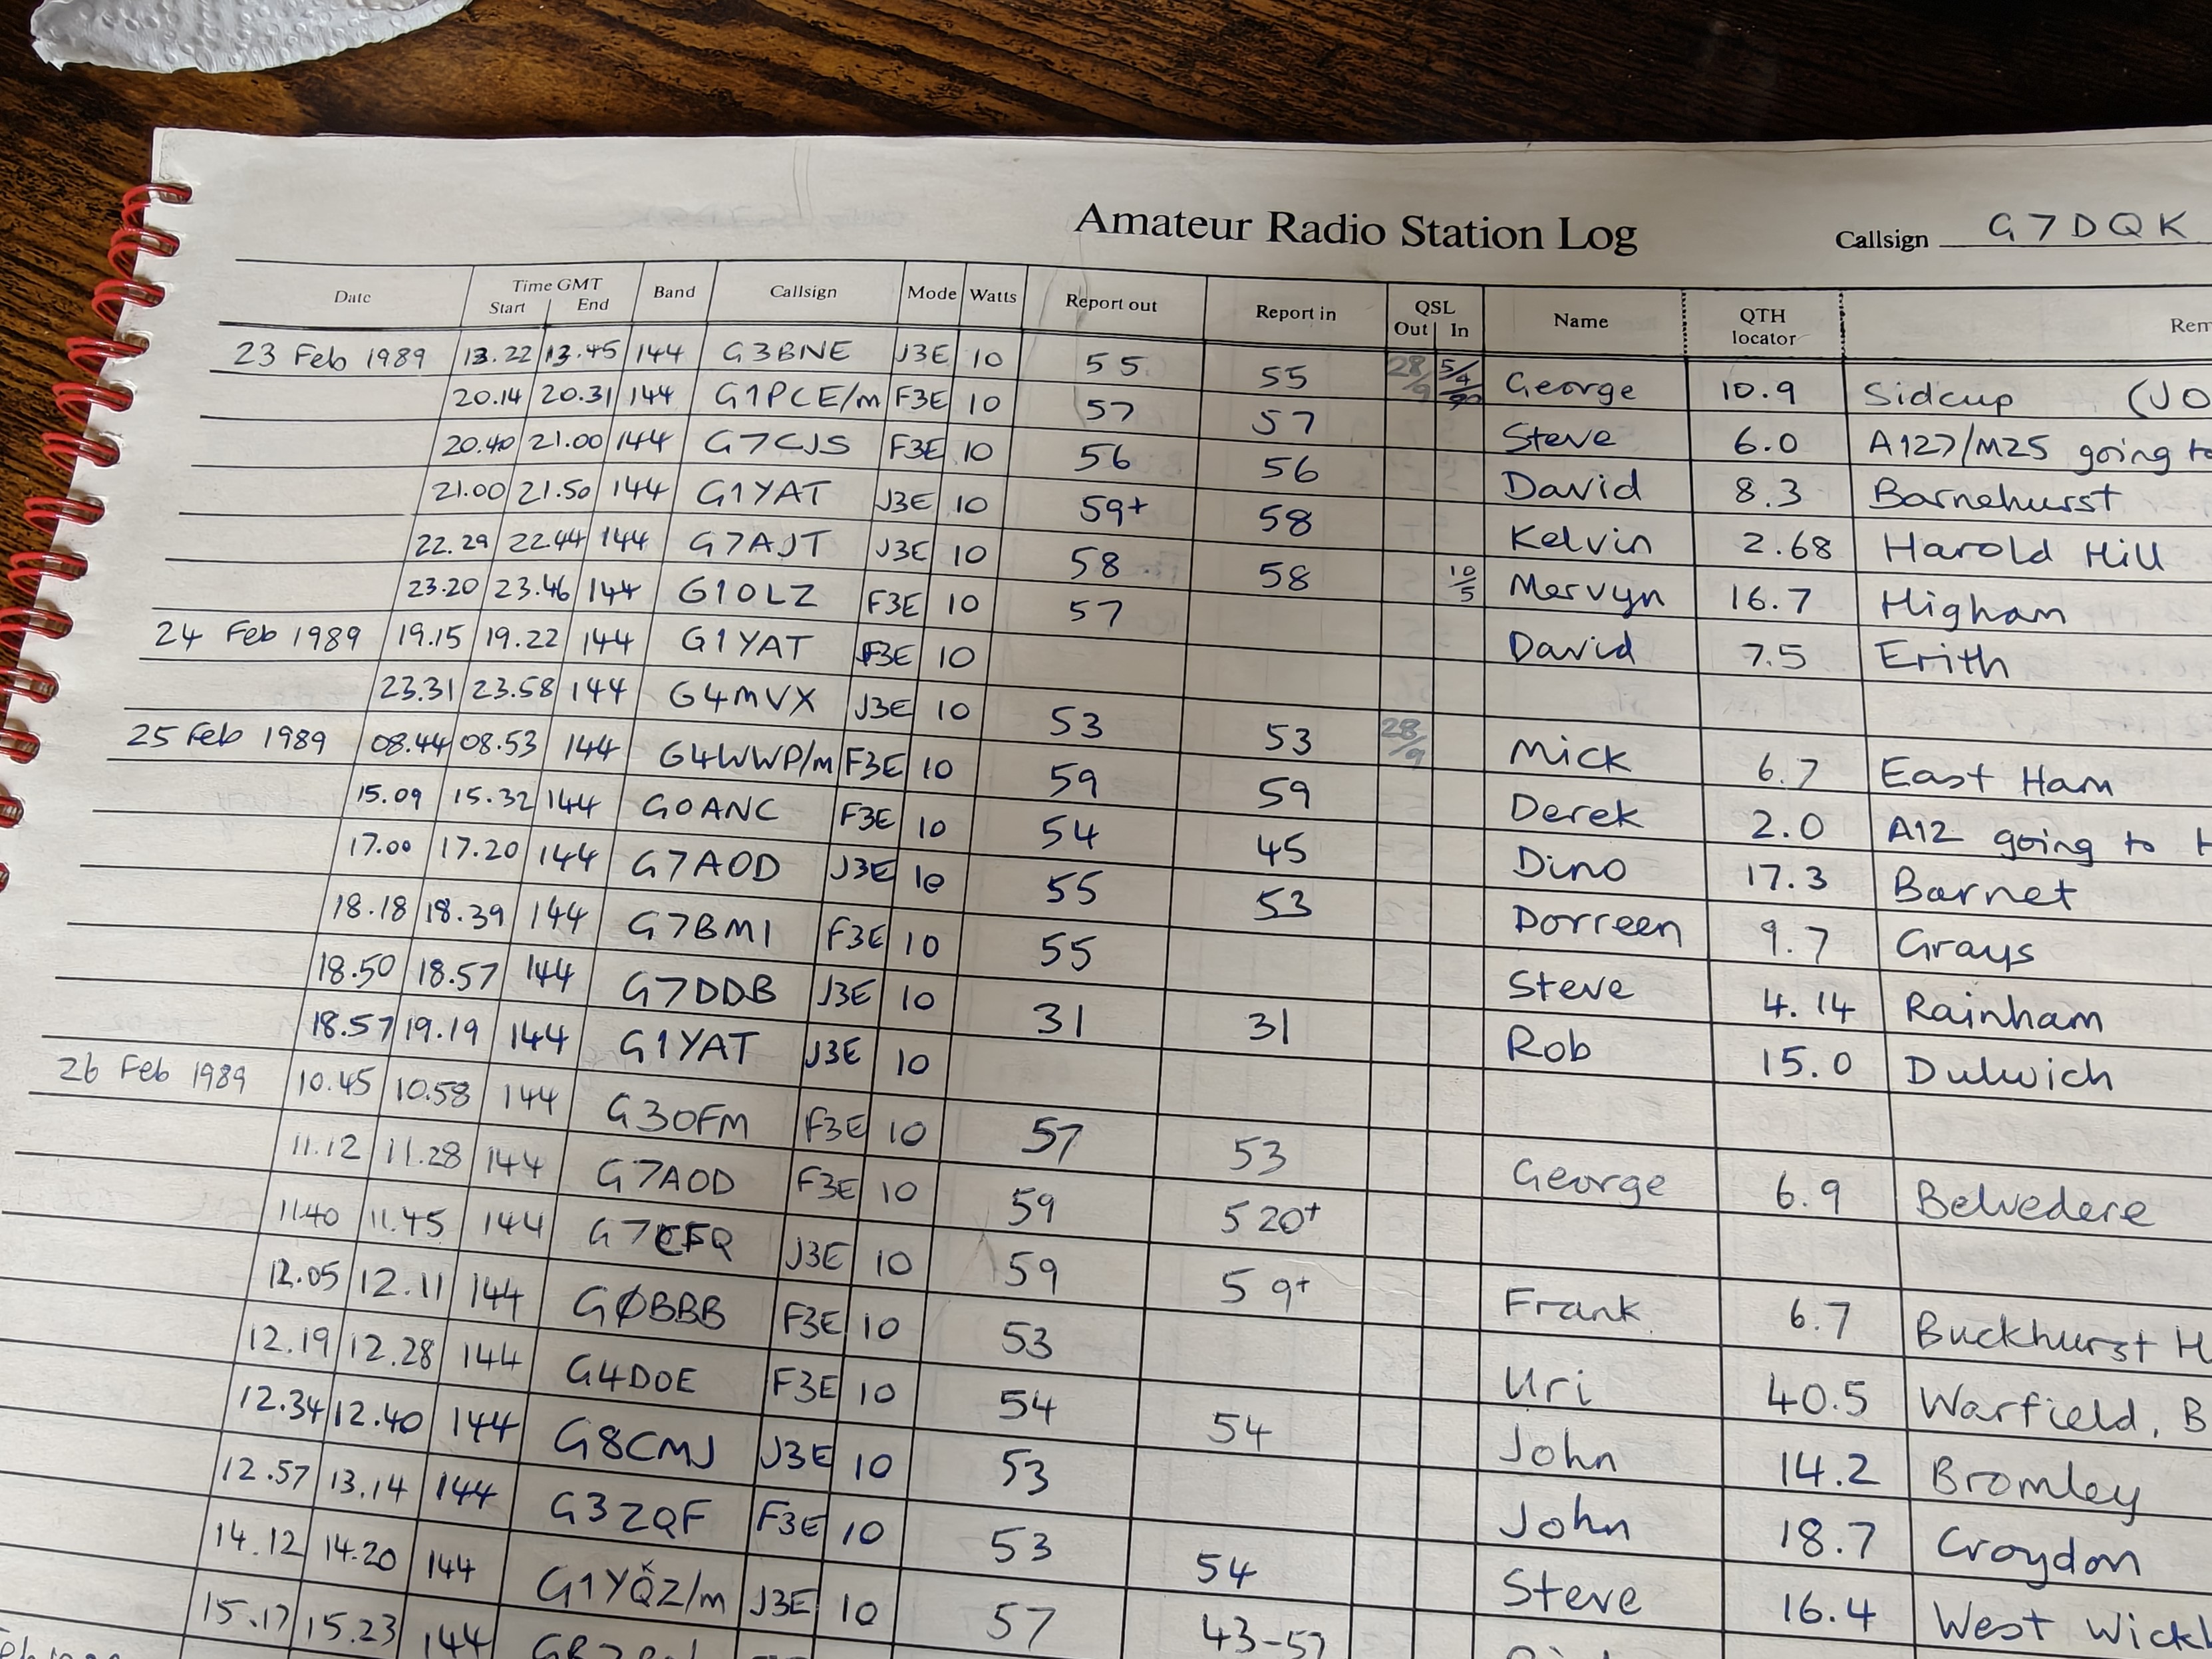 Amateur Radio Station Log
Callsign G7DQK
Date Time GMT Start End Band Callsign Mode Watts Report out Report in QSL Out In Name QTH locator Rem
23 Feb 1989 13.22 13.45 144 G3BNE J3E 10 55 55 28/9 5/4/90 George 10.9 Sidcup (JO
20.14 20.31 144 G1PCE/m F3E 10 57 57 Steve 6.0 A127/M25 going to
20.40 21.00 144 G7CJS F3E 10 56 56 David 8.3 Barnehurst
21.00 21.50 144 G1YAT J3E 10 59+ 58 Kelvin 2.68 Harold Hill
22.29 22.44 144 G7AJT J3E 10 58 58 10/5 Mervyn 16.7 Higham
23.20 23.46 144 G1OLZ F3E 10 57 David 7.5 Erith
24 Feb 1989 19.15 19.22 144 G1YAT F3E 10
23.31 23.58 144 G4MVX J3E 10 53 53 28/9 Mick 6.7 East Ham
25 Feb 1989 08.44 08.53 144 G4WWP/m F3E 10 59 59 Derek 2.0 A12 going to
15.09 15.32 144 G0ANC F3E 10 54 45 Dino 17.3 Barnet
17.00 17.20 144 G7AOD J3E 10 55 53 Dorreen 9.7 Grays
18.18 18.39 144 G7BMI F3E 10 55 Steve 4.14 Rainham
18.50 18.57 144 G7DDB J3E 10 31 31 Rob 15.0 Dulwich
18.57 19.19 144 G1YAT J3E 10
26 Feb 1989 10.45 10.58 144 G3OFM F3E 10 57 53 George 6.9 Belvedere
11.12 11.28 144 G7AOD F3E 10 59 5 20+
11.40 11.45 144 G7CFQ J3E 10 59 59+ Frank 6.7 Buckhurst H
12.05 12.11 144 GØBBB F3E 10 53 Uri 40.5 Warfield, B
12.19 12.28 144 G4DOE F3E 10 54 54 John 14.2 Bromley
12.34 12.40 144 G8CMJ J3E 10 53 John 18.7 Croydon
12.57 13.14 144 G3ZQF F3E 10 53 54 Steve 16.4 West Wickh
14.12 14.20 144 G1YQZ/m J3E 10 57 43-57
15.17 15.23 144